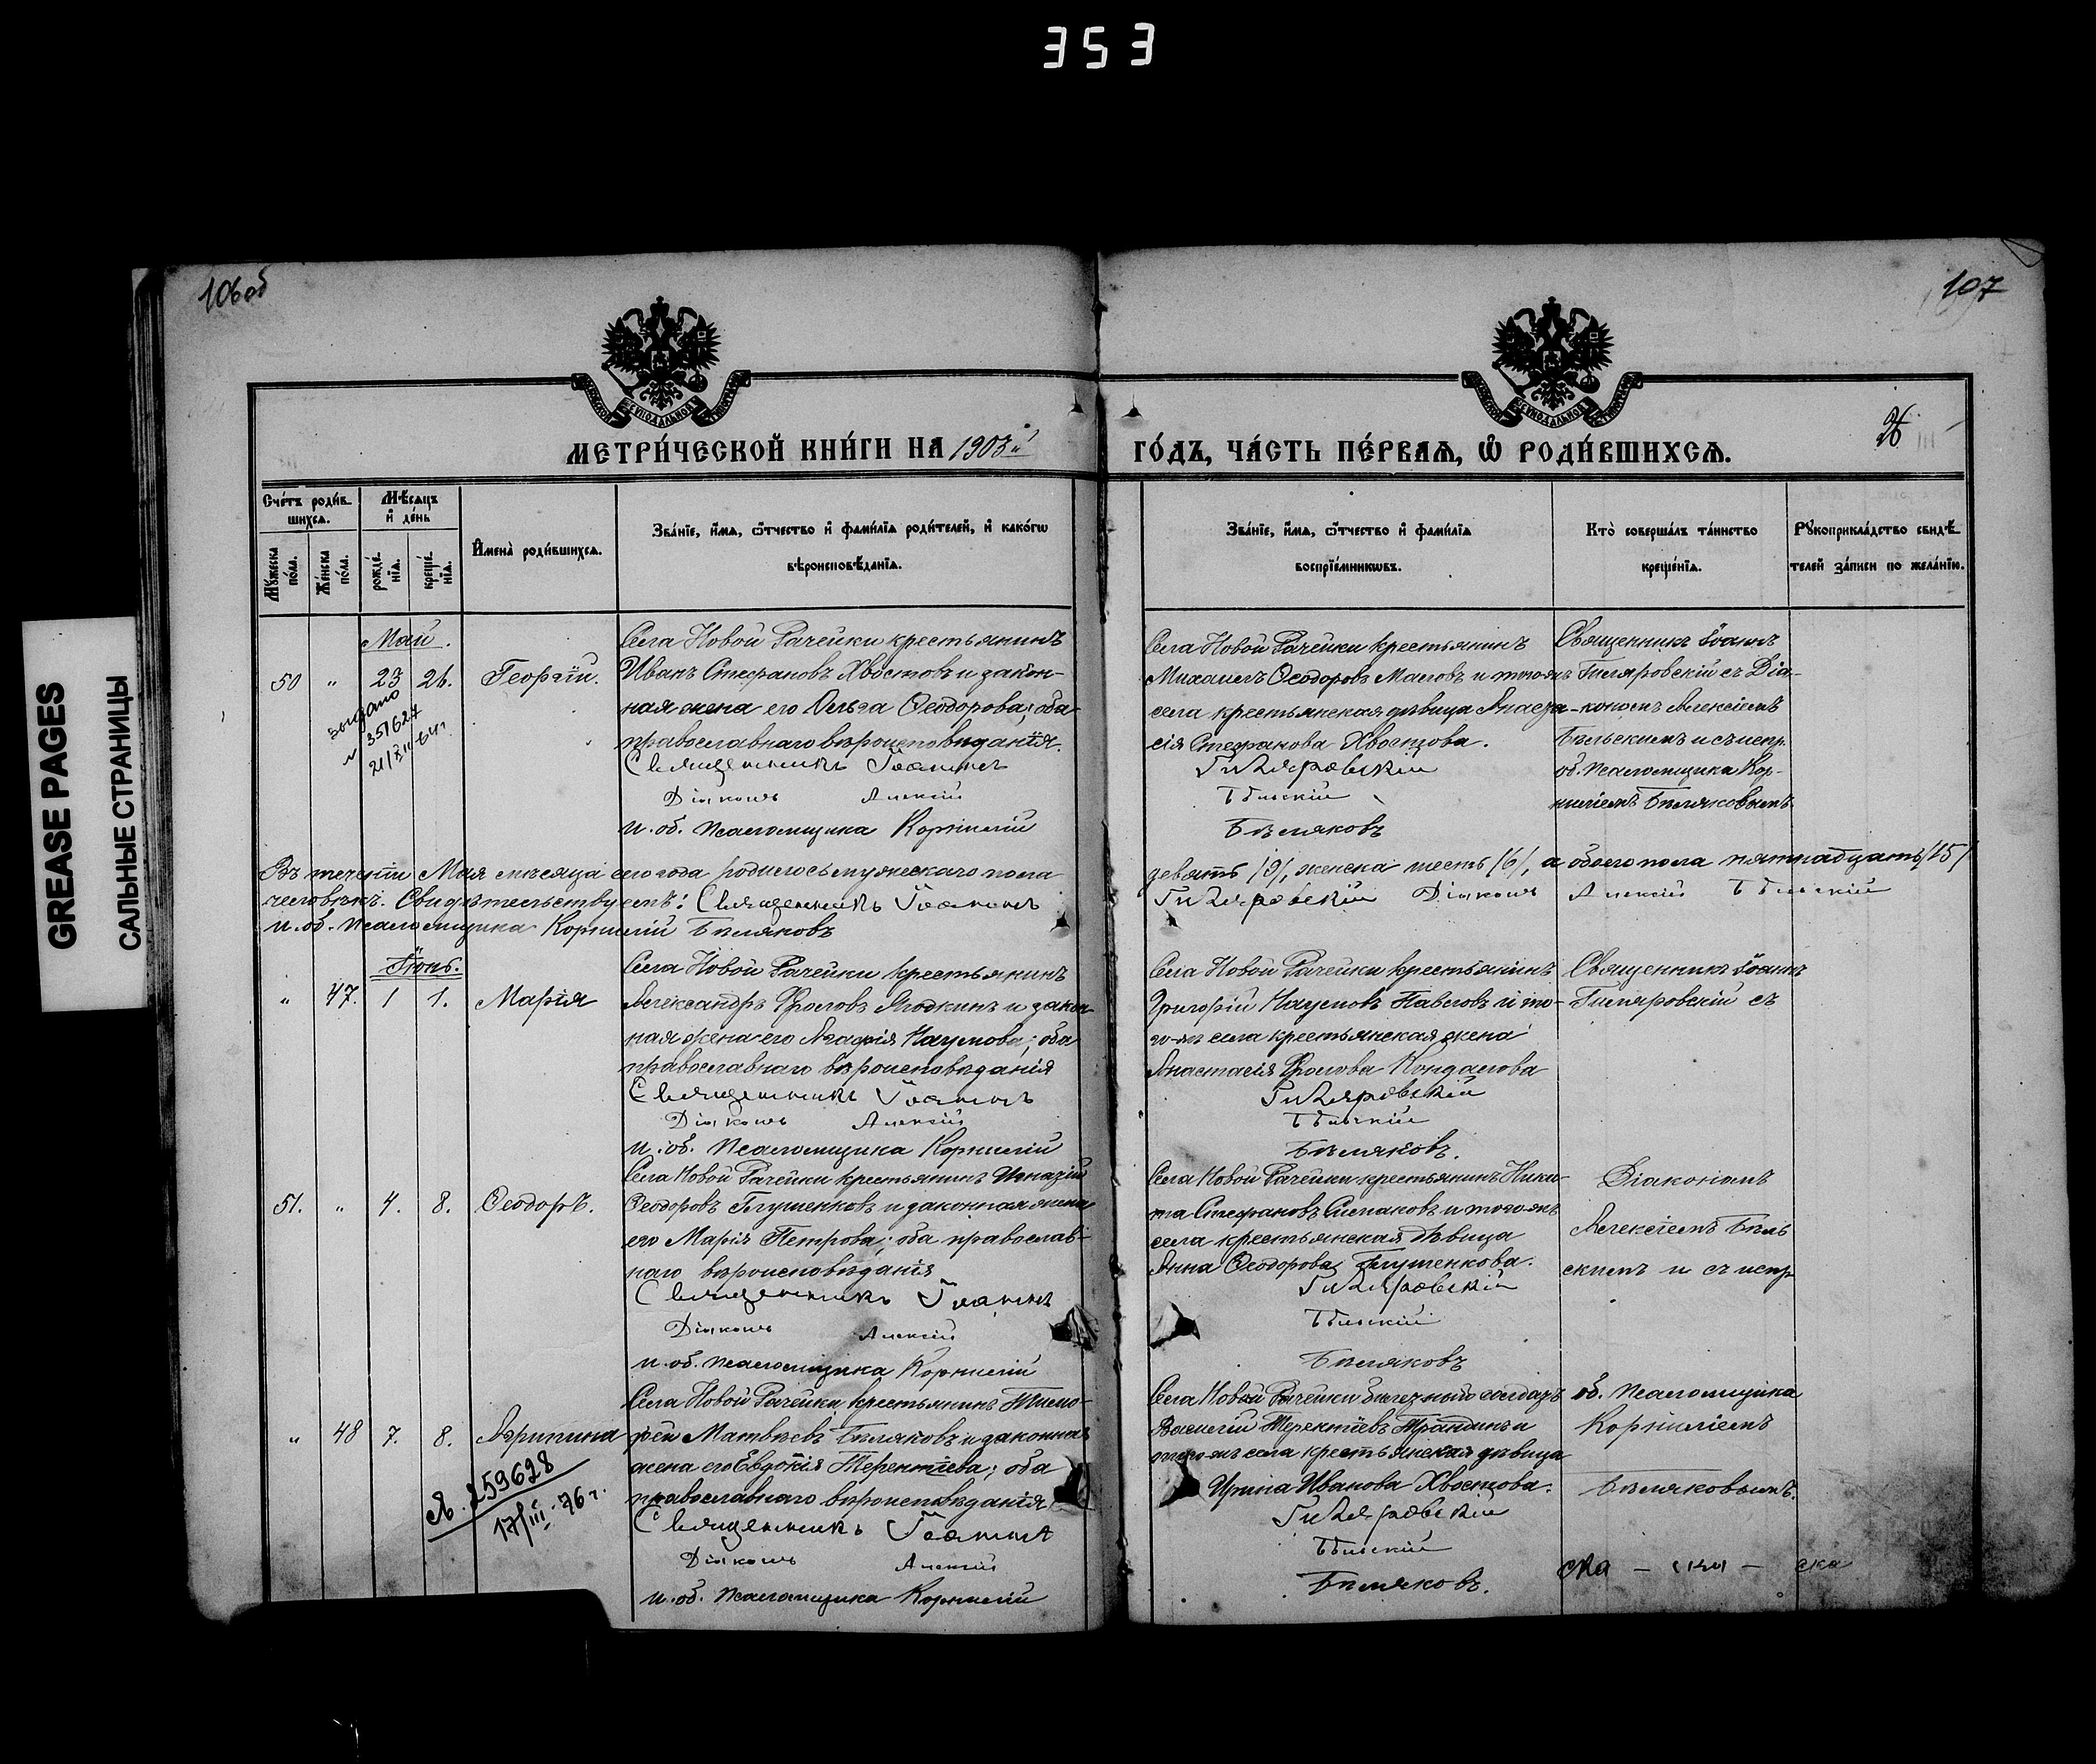 353
GREASE PAGES
САЛЬНЫЕ СТРАНИЦЫ
106об
107
26
МЕТРИ́ЧЕСКОЙ КНИ́ГИ НА 1903й
ГО́ДЪ, ЧА́СТЬ ПЕ́РВАѦ, Ѡ҆ РОДИ́ВШИХСѦ.
Сче́тъ роди́в-
шихсѧ.
Мѣ́сѧцъ
и҆ де́нь
Мꙋ́жеска по́ла.
Же́нска по́ла.
рожде́-
нїѧ.
креще́-
нїѧ.
И҆мена̀ роди́вшихсѧ.
Зва́нїе, и҆́мѧ, ѻ҆́тчество и҆ фами́лїѧ роди́телей, и҆ како́гѡ
вѣроисповѣ́данїѧ.
Зва́нїе, и҆́мѧ, ѻ҆́тчество и҆ фами́лїѧ
воспрїе́мникѡвъ.
Кто̀ соверша́лъ та́инство
креще́нїѧ.
Рꙋкоприкла́дство свидѣ́-
телей за́писи по жела́нїю.
Май.
50 " 23 26. Георгій.
выдано
№ 351627
Села Новой Рачейки крестьянинъ
Иванъ Стефановъ Хвостовъ и закон-
ная жена его Ольга Ѳеодорова; оба
православнаго вѣроисповѣданія.
Священникъ Іоаннъ
Діаконъ Алексій
И. об. псаломщика Корнилій
Села Новой Рачейки крестьянинъ
Михаилъ Ѳеодоровъ Масловъ и того-жъ
села крестьянская дѣвица Анаста-
сія Стефанова Хвостова.
Гиляровскій
Бѣльскій
Бѣляковъ
Священникъ Іоаннъ
Гиляровскій съ Діа-
кономъ Алексіемъ
Бѣльскимъ и съ испр.
об. псаломщика Кор-
ниліемъ Бѣляковымъ.
Въ теченіи Мая мѣсяца сего года родилось мужескаго пола
девять /9/, женска шесть /6/, а обоего пола пятнадцать /15/
человѣкъ. Свидѣтельствуемъ: Священникъ Іоаннъ
Гиляровскій Діаконъ Алексій Бѣльскій
И. об. псаломщика Корнилій Бѣляковъ
Іюнь.
" 47. 1 1. Марія
Села Новой Рачейки крестьянинъ
Александръ Фроловъ Ягодкинъ и закон-
ная жена его Агафія Наумова; оба
православнаго вѣроисповѣданія
Священникъ Іоаннъ
Діаконъ Алексій
И. об. псаломщика Корнилій
Села Новой Рачейки крестьянинъ
Григорій Наумовъ Павловъ и то-
го-жъ села крестьянская жена
Анастасія Фролова Кондалова
Гиляровскій
Бѣльскій
Бѣляковъ.
Священникъ Іоаннъ
Гиляровскій съ
51. " 4. 8. Ѳеодоръ.
Села Новой Рачейки крестьянинъ Игнатій
Ѳеодоровъ Глушенковъ и законная жена
его Марія Петрова; оба православ-
наго вѣроисповѣданія
Священникъ Іоаннъ
Діаконъ Алексій
И. об. псаломщика Корнилій
Села Новой Рачейки крестьянинъ Ники-
та Стефановъ Симаковъ и того-жъ
села крестьянская дѣвица
Анна Ѳеодорова Глушенкова.
Гиляровскій
Бѣльскій
Бѣляковъ
Діакономъ
Алексіемъ Бѣль
скимъ и съ испр
" 48 7. 8. Агрипина
Я. 259628
17/III-76 г.
Села Новой Рачейки крестьянинъ Тимо-
фей Матвѣевъ Бѣляковъ и законная
жена его Евдокія Терентіева; оба
православнаго вѣроисповѣданія
Священникъ Іоаннъ
Діаконъ Алексій
И. об. псаломщика Корнилій
Села Новой Рачейки билетный солдатъ
Василій Терентіевъ Трандинъ и
того-жъ села крестьянская дѣвица
Ирина Иванова Хвостова.
Гиляровскій
Бѣльскій
Бѣляковъ.
об. псаломщика
Корниліемъ
Бѣляковымъ.